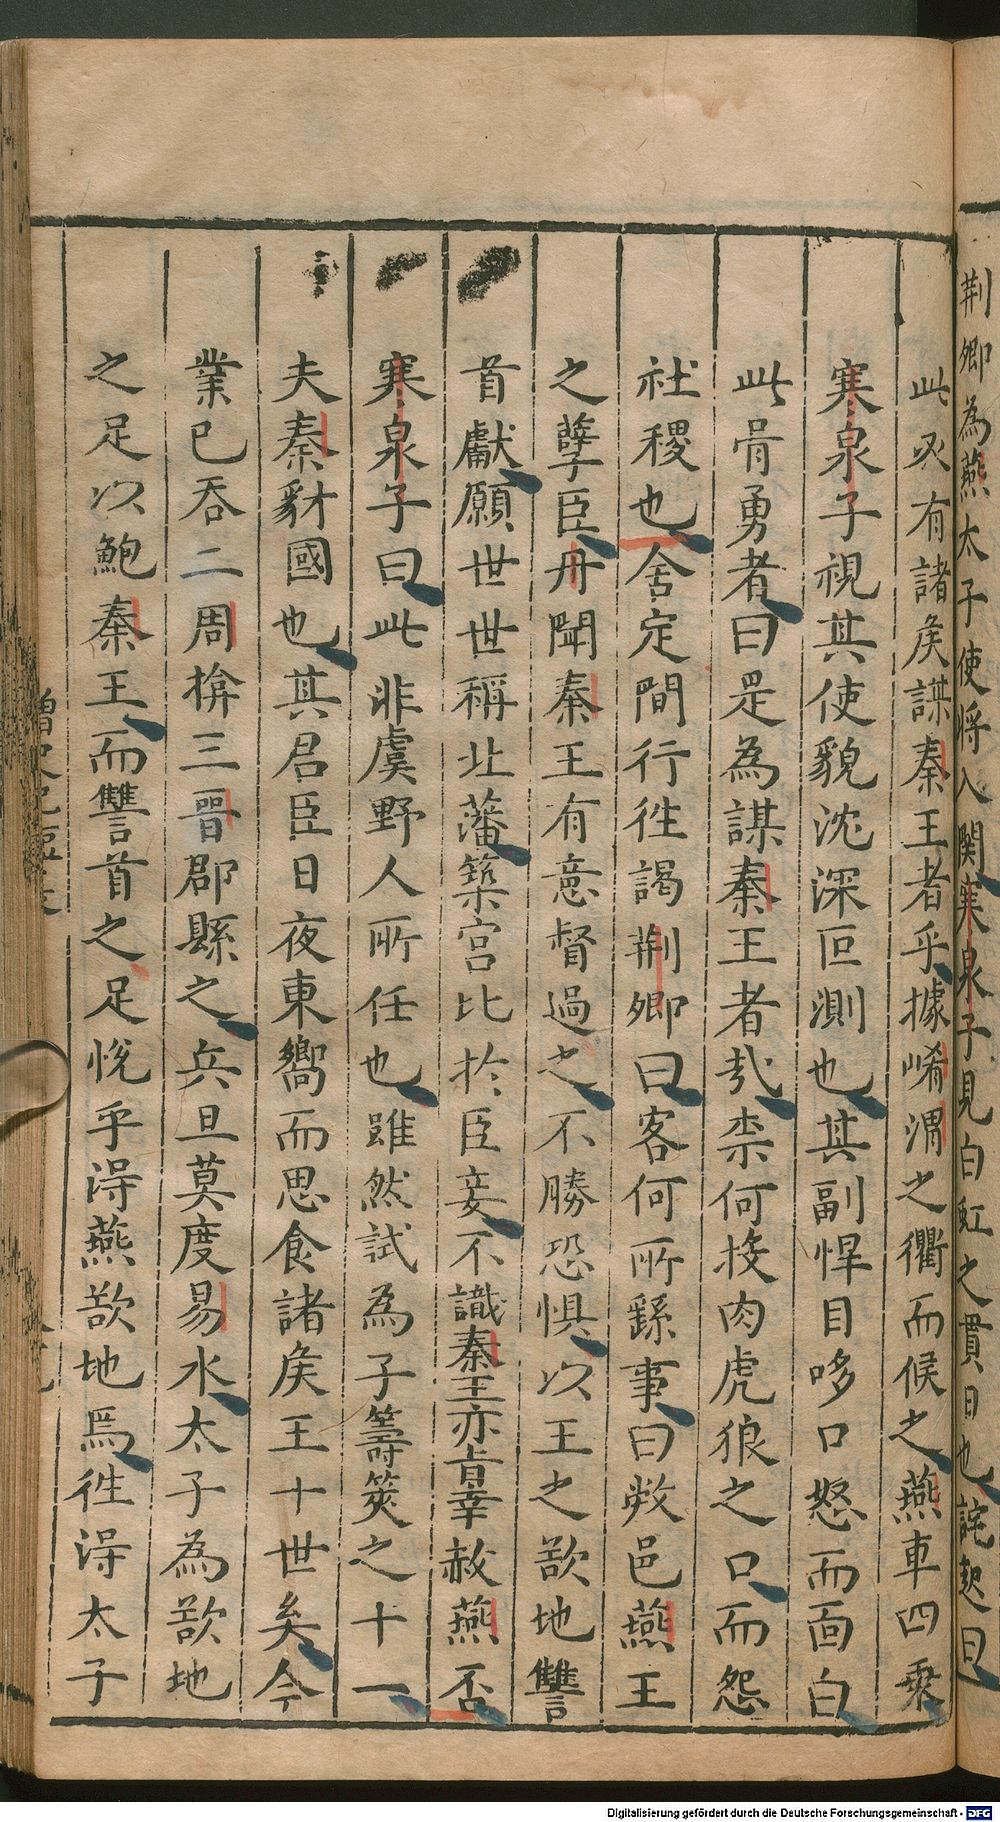 荆卿為燕太子使將入關寒泉子見白虹之貫日也詫起曰
此必有諸矦謀秦王者乎據崤澠之衢而候之燕車四乗
寒泉子視其使貌沈深叵測也其副悍目哆口怒而面白
此骨勇者曰是為謀秦王者㢤柰何投肉虎狼之口而怨
社稷也舍定間行徃謁荆卿曰客何所繇事曰敝邑燕王
之孽臣丹聞秦王有意督過之不勝恐惧以王之欲地讐
首獻願世世稱北藩築宫比於臣妾不識秦王亦肯幸赦燕否
寒泉子曰此非虞野人所任也雖然試為子籌筴之十一
夫秦豺國也其君臣日夜東嚮而思食諸矦王十世矣今
業已吞二周揜三晉郡縣之兵旦莫度易水太子為欲地
之足以鮑秦王而讐首之足悅乎淂燕欲地焉徃淂太子
Digitalisierung gefördert durch die Deutsche Forschungsgemeinschaft - DFG